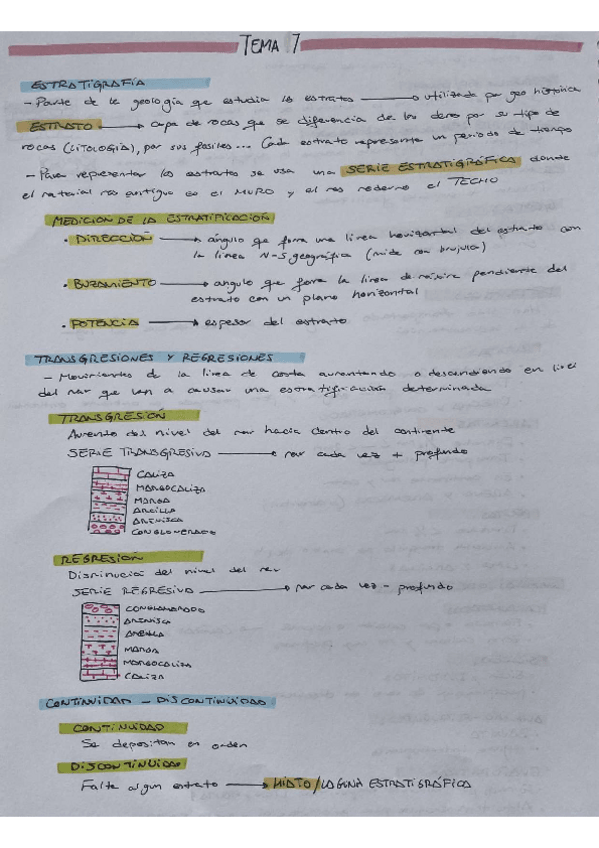 TEMA 7
ESTRATIGRAFÍA
- Parte de la geología que estudia los estratos → utilizada por geo histórica
ESTRATO → capa de rocas que se diferencia de las demás por su tipo de
rocas (LITOLOGÍA), por sus fósiles... Cada estrato representa un periodo de tiempo
- Para representar los estratos se usa una SERIE ESTRATIGRÁFICA donde
el material más antiguo es el MURO y el más moderno el TECHO
MEDICIÓN DE LA ESTRATIFICACIÓN
· DIRECCIÓN → ángulo que forma una línea horizontal del estrato con
la línea N-S geográfica (mide con brújula)
· BUZAMIENTO → angulo que forma la línea de máxima pendiente del
estrato con un plano horizontal
· POTENCIA → espesor del estrato
TRANSGRESIONES Y REGRESIONES
- Movimientos de la línea de costa aumentando o descendiendo en nivel
del mar que van a causar una estratificación determinada
TRANSGRESIÓN
Aumento del nivel del mar hacia dentro del continente
SERIE TRANSGRESIVO → mar cada vez + profundo
CALIZA
MARGOCALIZA
MARGA
ARCILLA
ARENISCA
CONGLOMERADO
REGRESIÓN
Disminución del nivel del mar
SERIE REGRESIVO → mar cada vez - profundo
CONGLOMERADO
ARENISCA
ARCILLA
MARGA
MARGOCALIZA
CALIZA
CONTINUIDAD - DISCONTINUIDAD
CONTINUIDAD
Se depositan en orden
DISCONTINUIDAD
Falta algun estrato → HIATO/LAGUNA ESTRATIGRÁFICA